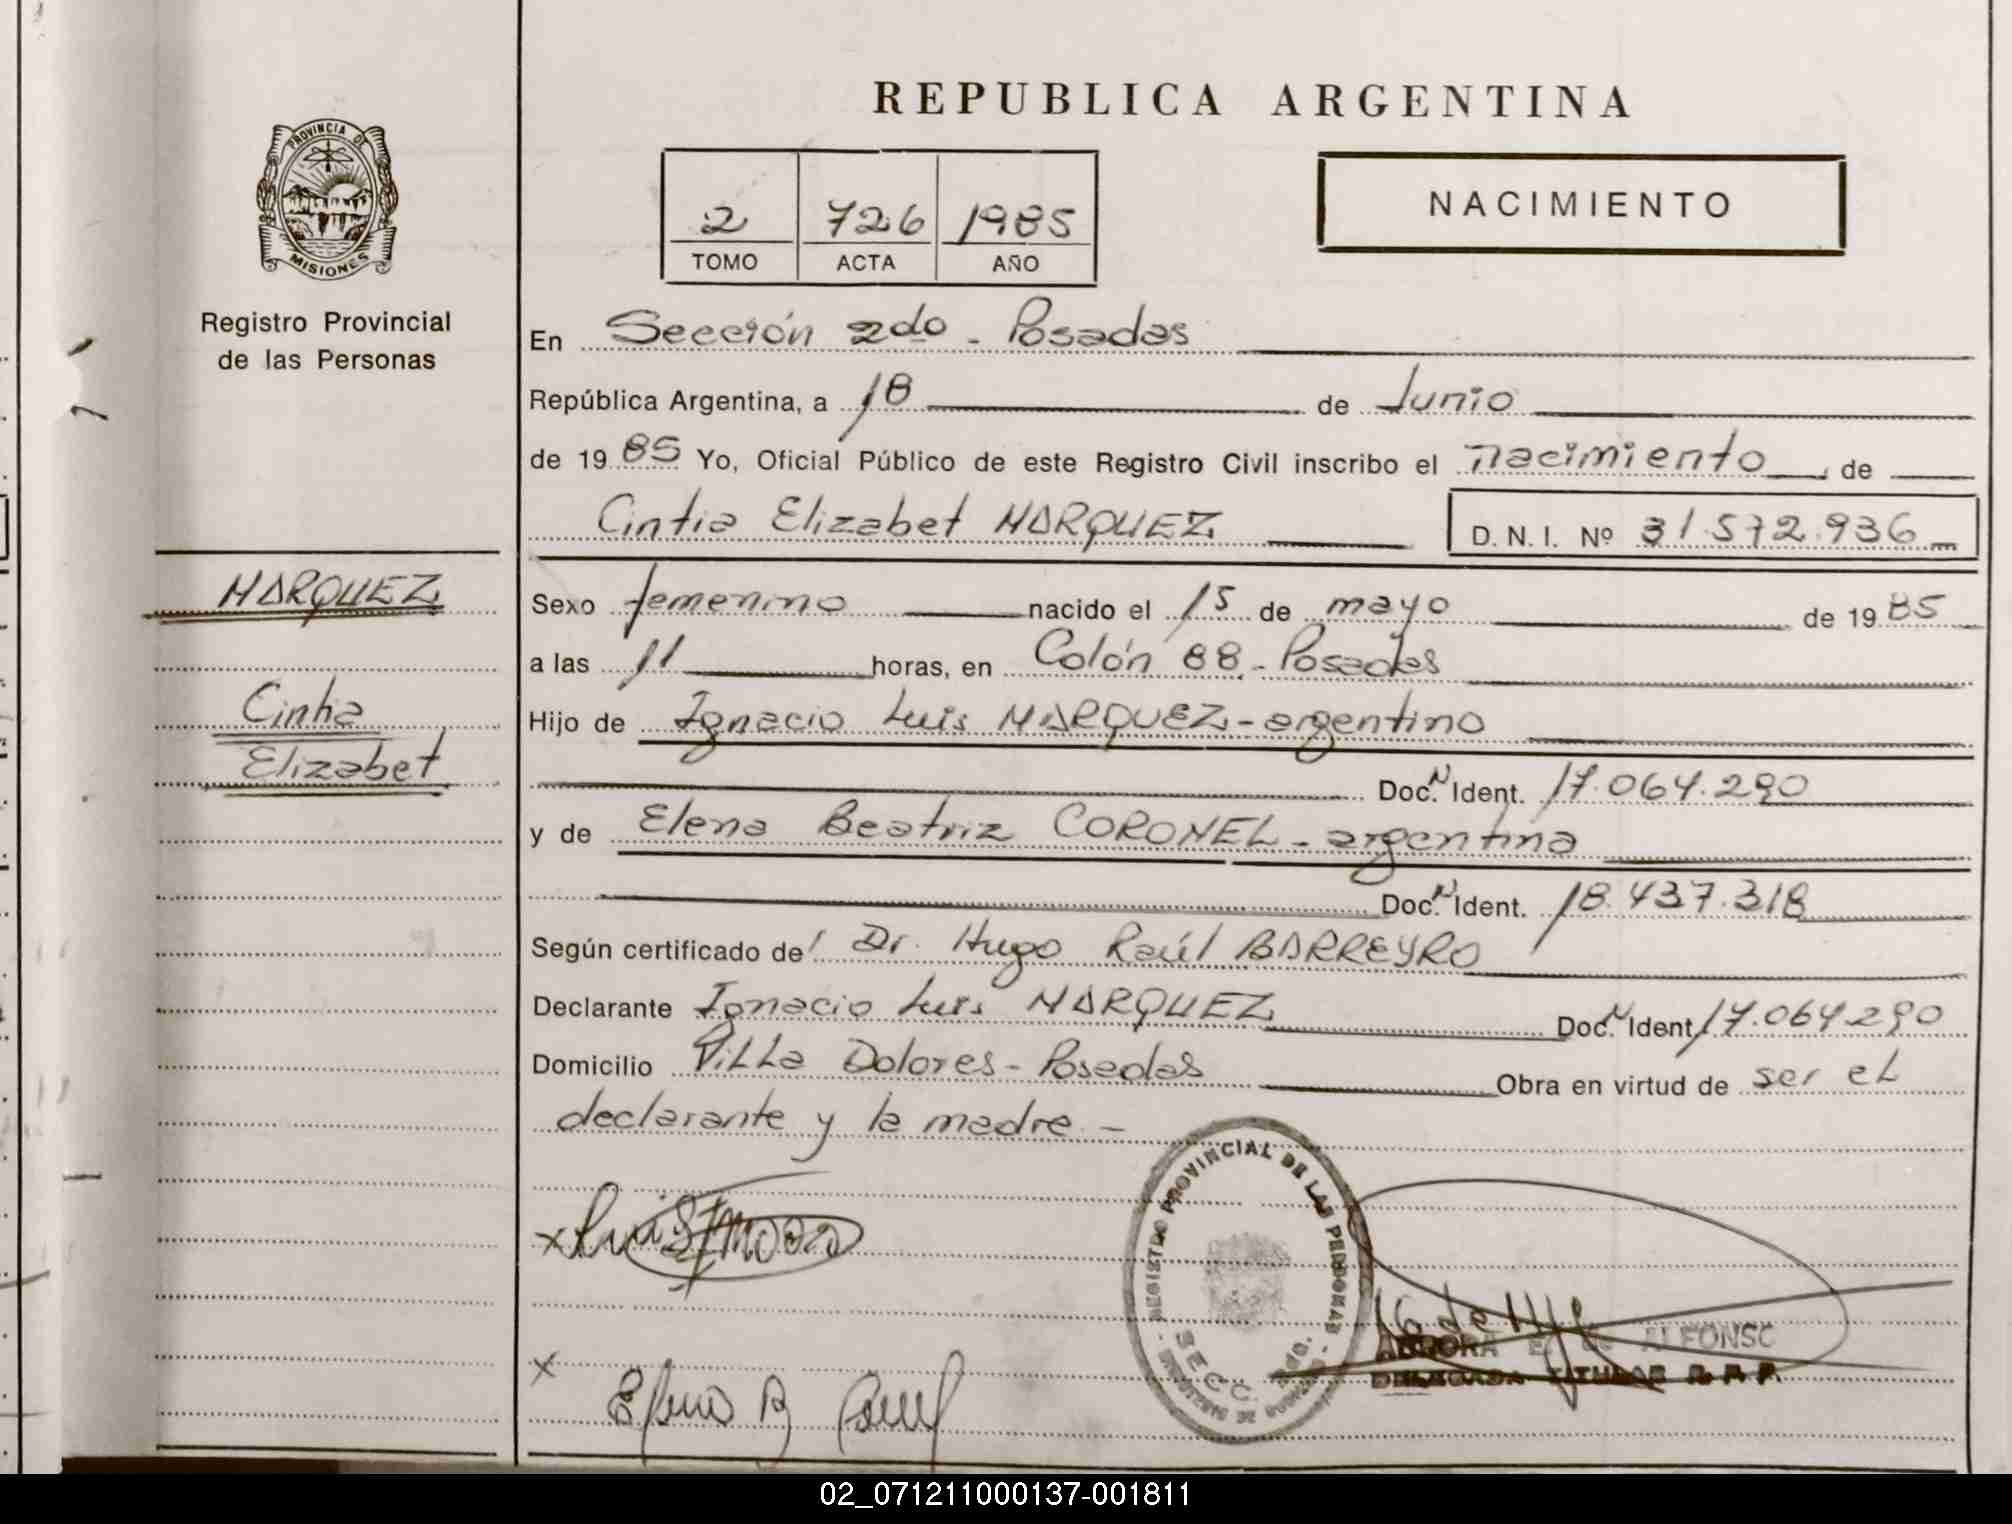 REPUBLICA ARGENTINA
PROVINCIA DE
MISIONES
Registro Provincial
de las Personas
2 726 1985
TOMO ACTA AÑO
NACIMIENTO
En Sección 2do - Posadas
República Argentina, a 18 de Junio
de 1985 Yo, Oficial Público de este Registro Civil inscribo el nacimiento, de
Cintia Elizabet MARQUEZ D. N. I. Nº 31.572.936
MARQUEZ
Cintia
Elizabet
Sexo femenino nacido el 15 de mayo de 1985
a las 11 horas, en Colón 88 - Posadas
Hijo de Ignacio Luis MARQUEZ - argentino
Doc. N Ident. 17.064.290
y de Elena Beatriz CORONEL - argentina
Doc. N Ident. 18.437.318
Según certificado de Dr. Hugo Raúl BARREYRO
Declarante Ignacio Luis MARQUEZ Doc. N Ident. 17.064.290
Domicilio Villa Dolores - Posadas Obra en virtud de ser el
declarante y la madre. -
REGISTRO PROVINCIAL DE LAS PERSONAS
SECC. 2do.
x
x Elena B
ALFONSO
TITULAR R. P. P.
02_071211000137-001811